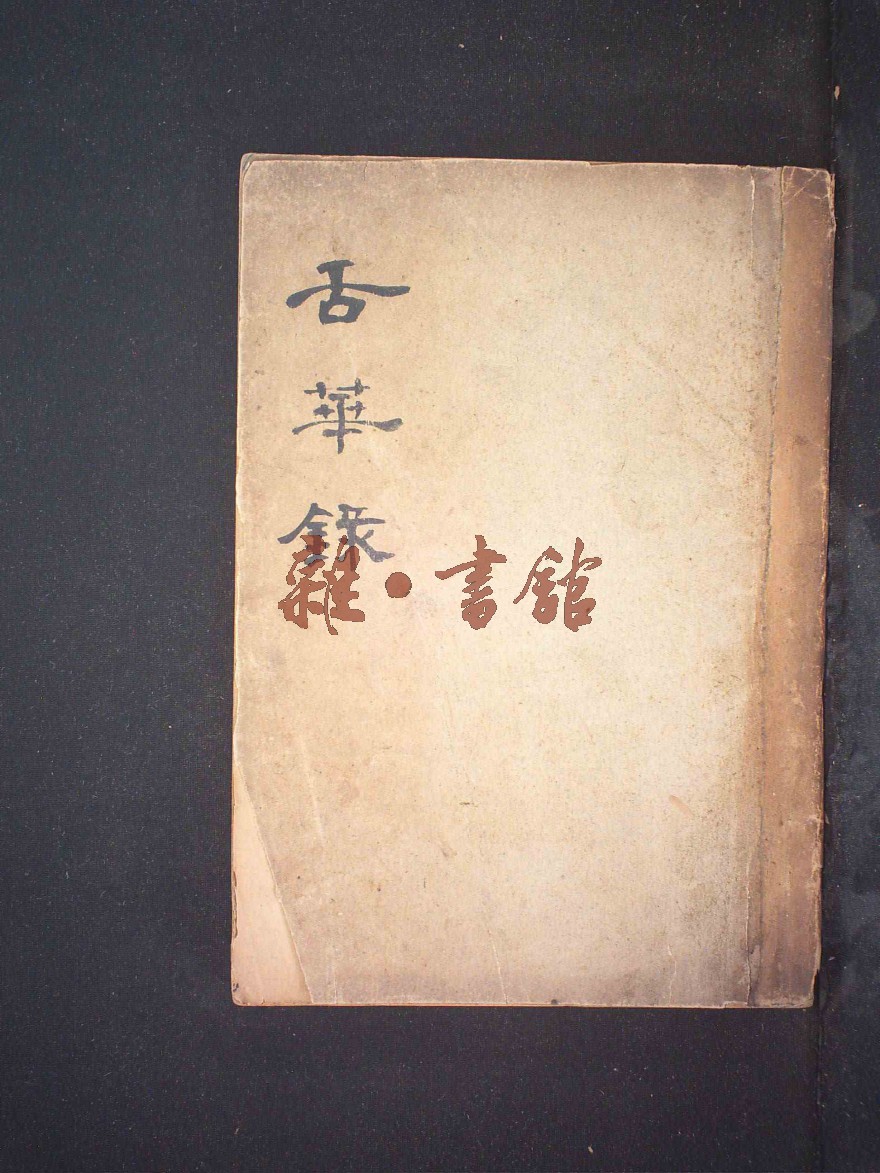 舌華錄
雜·書館